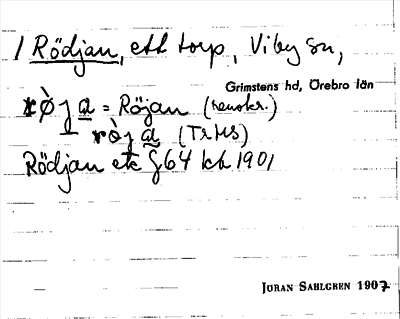 1 Rödjan, ett torp, Viby sn,
Grimstens hd, Örebro län
rò̀ja = Röjan (renskr.)
rò̀ja (TrHS)
Rödjan etc § 64 kh 1901
JÖRAN SAHLGREN 1907